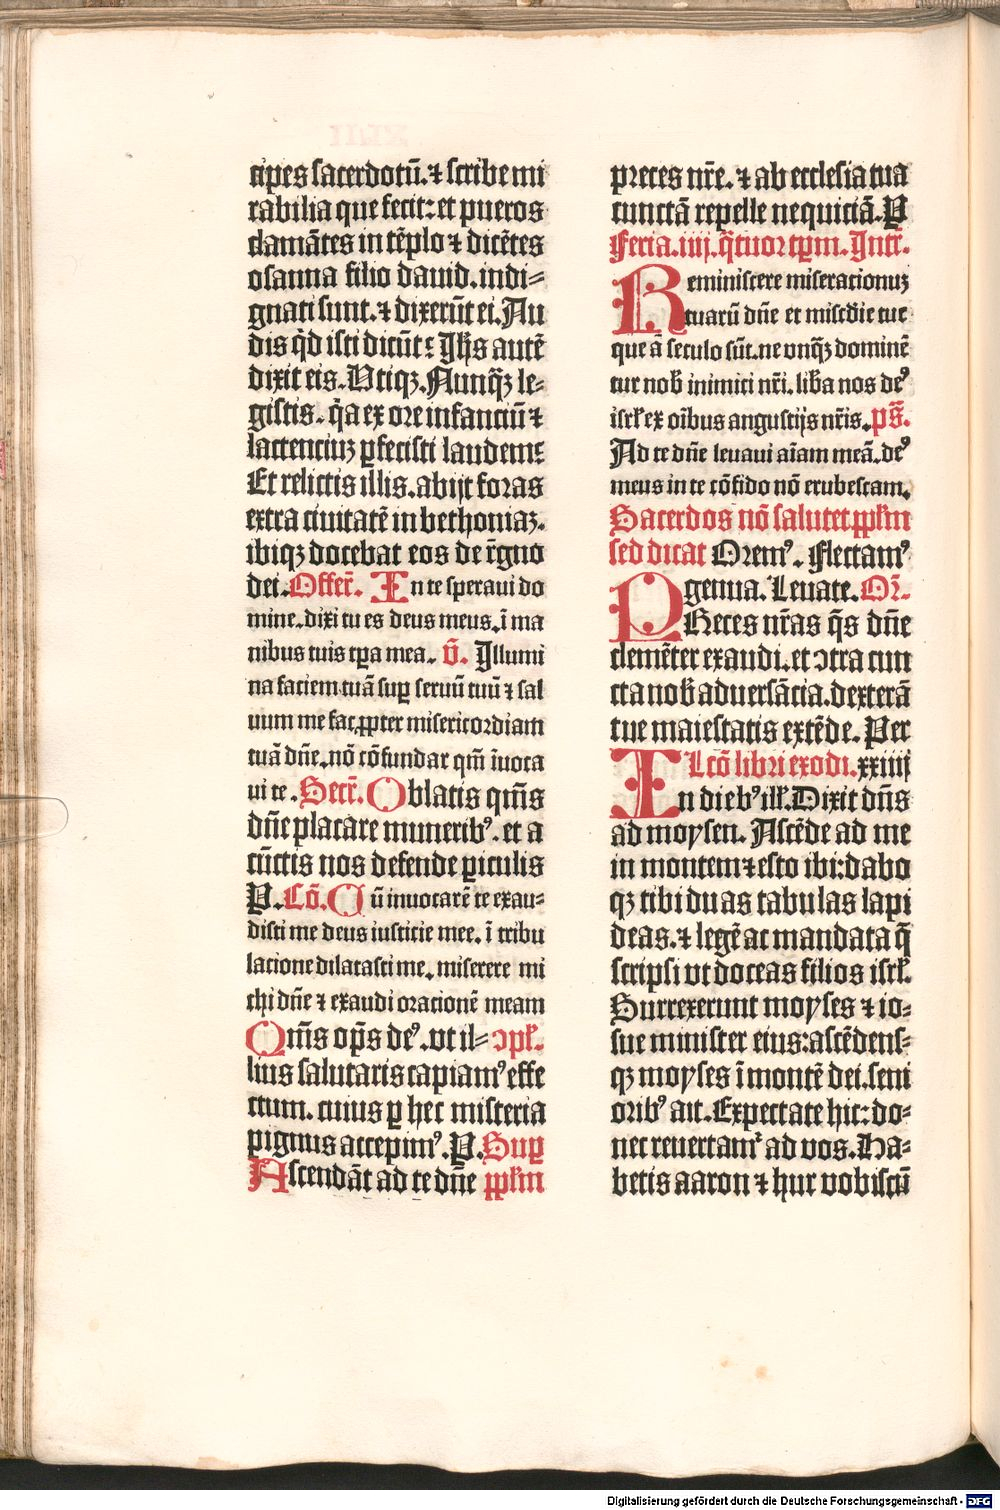 cipes sacerdotū. ⁊ scribe mi
rabilia que fecit: et pueros
clamātes in tēplo ⁊ dicētes
osanna filio dauid. indi⸗
gnati sunt. ⁊ dixerūt ei. Au
dis qd̄ isti dicūt: Jhs̄ autē
dixit eis. Vtiqꝫ. Nunqꝫ̄ le⸗
gistis. qa̅ ex ore infanciū ⁊
lactenciuꝫ ꝑfecisti laudem:
Et relictis illis. abijt foras
extra ciuitatē in bethoniaꝫ.
ibiqꝫ docebat eos de rēgno
dei. Offer̄. In te speraui do
mine. dixi tu es deus meus. ī ma
nibus tuis tꝑa mea. v̄. Illumi
na faciem tuā suꝑ seruū tuū ⁊ sal
uum me fac ꝓpter misericordiam
tuā dn̄e. nō cōfundar qm̄ īuoca
ui te. Secr̄. Oblatis qm̄s
dn̄e placare munerib⁹. et a
cūctis nos defende ꝑiculis
P. Cō. Cū inuocarē te exau⸗
disti me deus iusticie mee. ī tribu
lacione dilatasti me. miserere mi
chi dn̄e ⁊ exaudi oracionē meam
Qm̄s oꝑs de⁹. vt il⸗ ↄpl̄.
lius salutaris capiam⁹ effe
ctum. cuius ꝑ hec misteria
pignus accepim⁹. P. Suꝑ
Ascendāt ad te dn̄e ppl̄m
preces nr̄e. ⁊ ab ecclesia tua
cunctā repelle nequiciā. P
Feria. iiij. q̄tuor tꝑm. Intr̄.
Reminiscere miseracionuꝫ
tuarū dn̄e et misc̄die tue
que ā seculo sūt. ne vnqꝫ̄ dominē
tur nob̄ inimici nr̄i. lib̄a nos de⁹
isrl̄ ex oībus angustijs nr̄is. ps̄.
Ad te dn̄e leuaui aīam meā. de⁹
meus in te cōfido nō erubescam.
Sacerdos nō salutet ppl̄m
sed dicat Orem⁹. Flectam⁹
genua. Leuate. Or̄.
PReces nr̄as qs̄ dn̄e
clemēter exaudi. et ↄtra cun
cta nob̄ aduersācia. dexterā
tue maiestatis extēde. Per
Lcō libri exodi. xxiiij
In dieb⁹ ill̄. Dixit dn̄s
ad moysen. Ascēde ad me
in montem ⁊ esto ibi: dabo
qꝫ tibi duas tabulas lapi
deas. ⁊ legē ac mandata q̄
scripsi vt doceas filios isrl̄.
Surrexerunt moyses ⁊ io⸗
sue minister eius: ascēdens⸗
qꝫ moyses ī montē dei. seni
orib⁹ ait. Expectate hic: do⸗
nec reuertam᷑ ad vos. Ha⸗
betis aaron ⁊ hur vobiscū
Digitalisierung gefördert durch die Deutsche Forschungsgemeinschaft - DFG